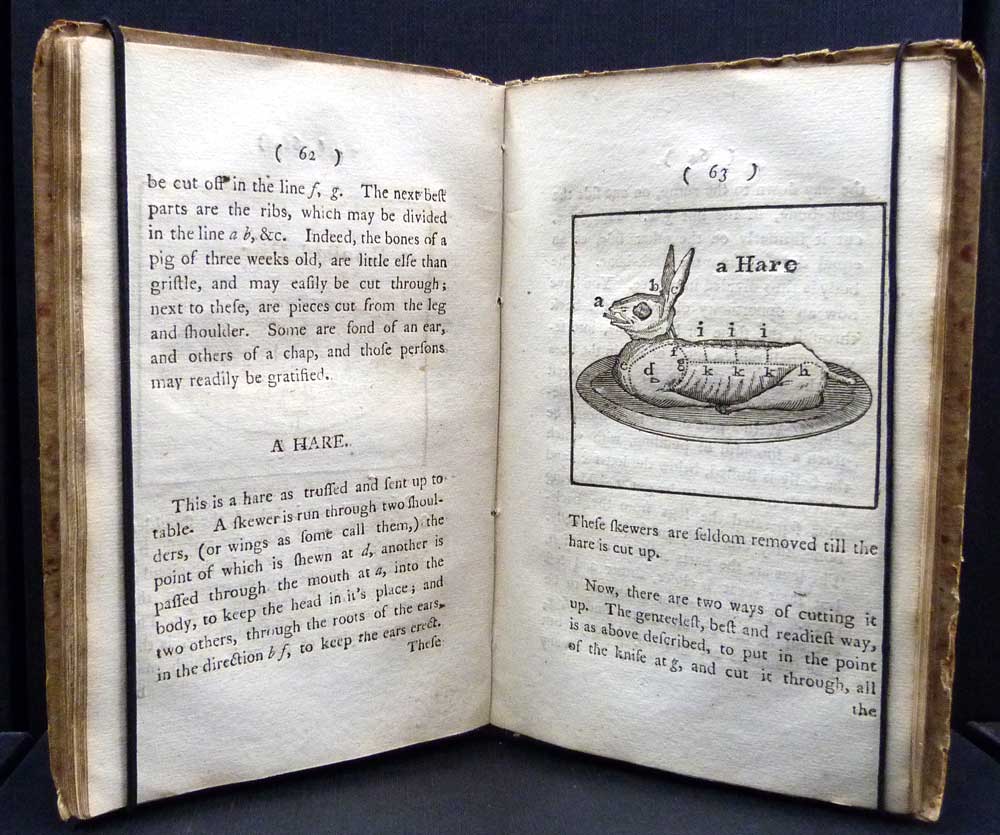 ( 62 )
be cut off in the line f, g. The next beſt
parts are the ribs, which may be divided
in the line a b, &c. Indeed, the bones of a
pig of three weeks old, are little elſe than
griſtle, and may eaſily be cut through;
next to theſe, are pieces cut from the leg
and ſhoulder. Some are fond of an ear,
and others of a chap, and thoſe perſons
may readily be gratified.
A HARE.
This is a hare as truſſed and ſent up to
table. A ſkewer is run through two ſhoul-
ders, (or wings as ſome call them,) the
point of which is ſhewn at d, another is
paſſed through the mouth at a, into the
body, to keep the head in it's place; and
two others, through the roots of the ears,
in the direction b f, to keep the ears erect.
Theſe
( 63 )
a Hare
a
b
c
i i i
f
c
g
d
k k k h
Theſe ſkewers are ſeldom removed till the
hare is cut up.
Now, there are two ways of cutting it
up. The genteeleſt, beſt and readieſt way,
is as above deſcribed, to put in the point
of the knife at g, and cut it through, all
the